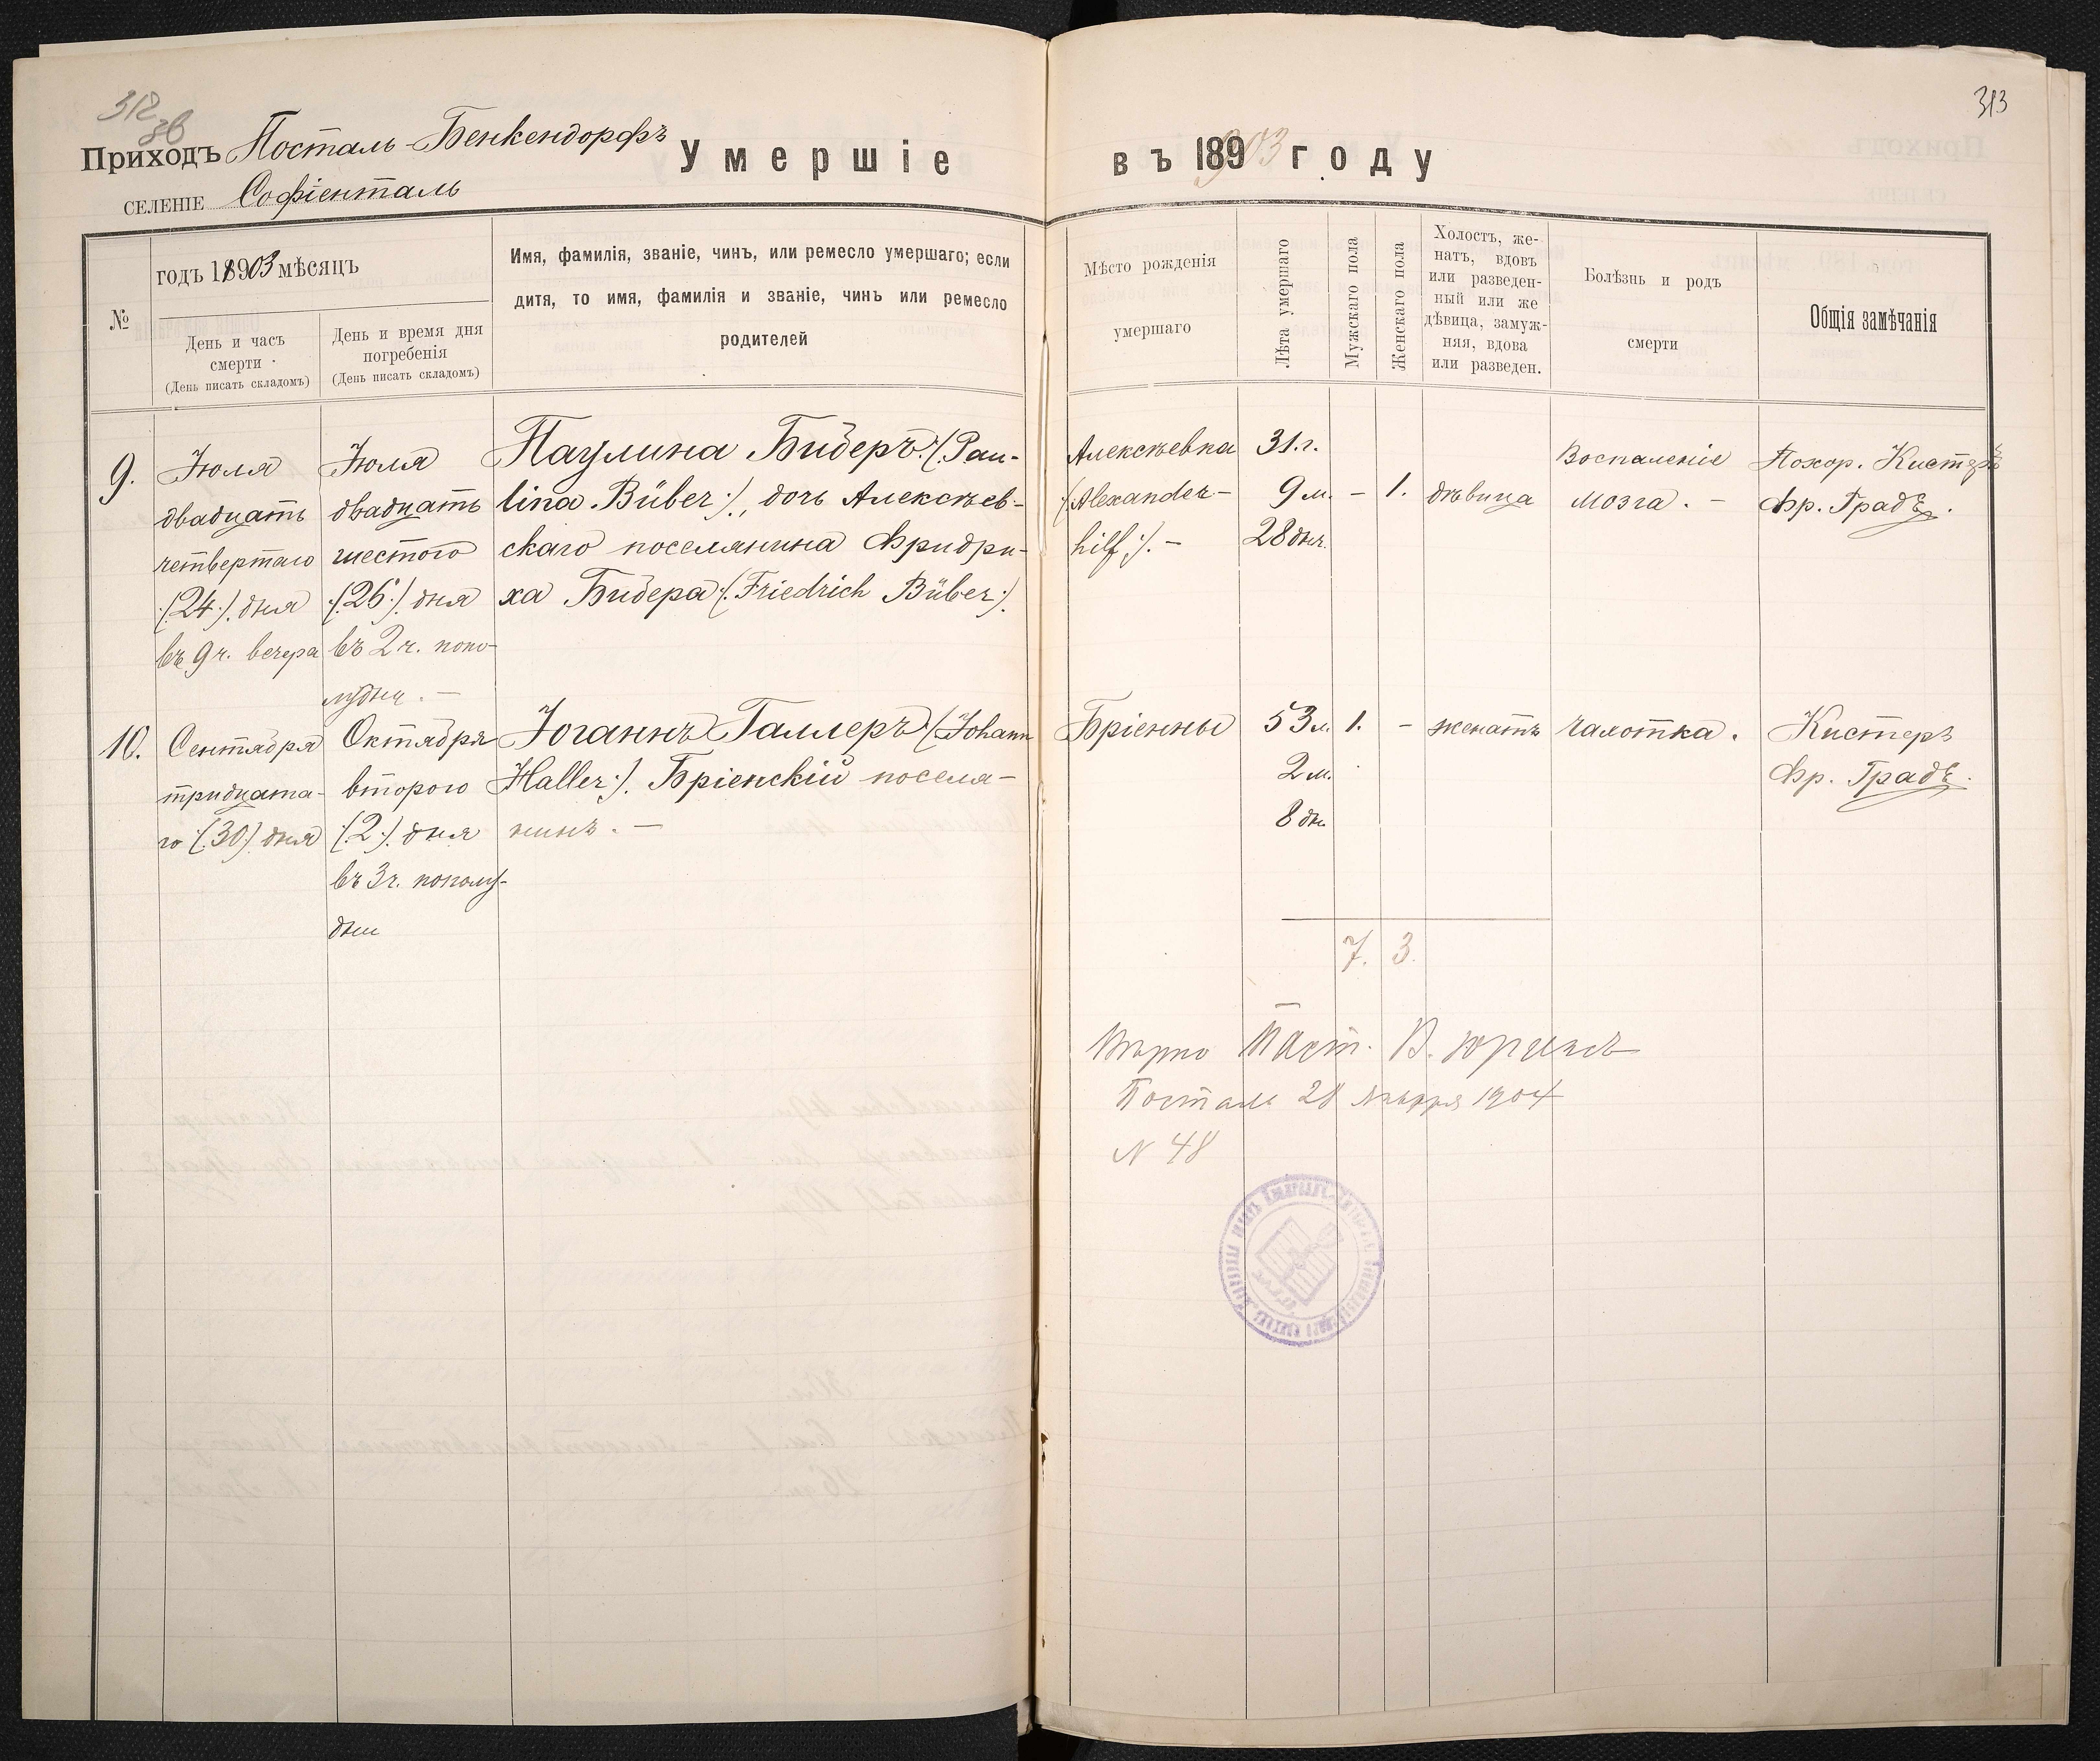 312
зв
313
Приходъ Посталь-Бенкендорфъ
Умершіе
въ 1903 году
СЕЛЕНІЕ Софіенталь
№
годъ 1903 мѣсяцъ
День и часъ
смерти
(День писать складомъ)
День и время дня
погребенія
(День писать складомъ)
Имя, фамилія, званіе, чинъ, или ремесло умершаго; если
дитя, то имя, фамилія и званіе, чинъ или ремесло
родителей
Мѣсто рожденія
умершаго
Лѣта умершаго
Мужскаго пола
Женскаго пола
Холостъ, же-
натъ, вдовъ
или разведен-
ный или же
дѣвица, замуж-
няя, вдова
или разведен.
Болѣзнь и родъ
смерти
Общія замѣчанія
9.
Іюля
двадцать
четвертаго
(:24:) дня
въ 9 ч. вечера
Іюля
двадцать
шестого
(:26:) дня
въ 2 ч. попо-
лудни. —
Паулина Бидеръ (:Pau-
lina Büber:), дочь Алексѣев-
скаго поселянина Фридри-
ха Бидера (:Friedrich Büber:).
Алексѣевка
(:Alexander-
hilf:). —
31 г.
9 м.
28 дн.
—
1.
дѣвица
Воспаленіе
мозга. —
Похор. Кистеръ
Фр. Градъ.
10.
Сентября
тридцата-
го (:30:) дня
Октября
второго
(:2:) дня
въ 3 ч. пополу-
дни
Іоганнъ Галлеръ (:Johann
Haller:). Бріенскій поселя-
нинъ. —
Бріенны
53 л.
2 м.
8 дн.
1.
—
женатъ
чахотка.
Кистеръ
Фр. Градъ.
7. 3.
Вѣрно Паст.
Посталь 28 Января 1904
N 48